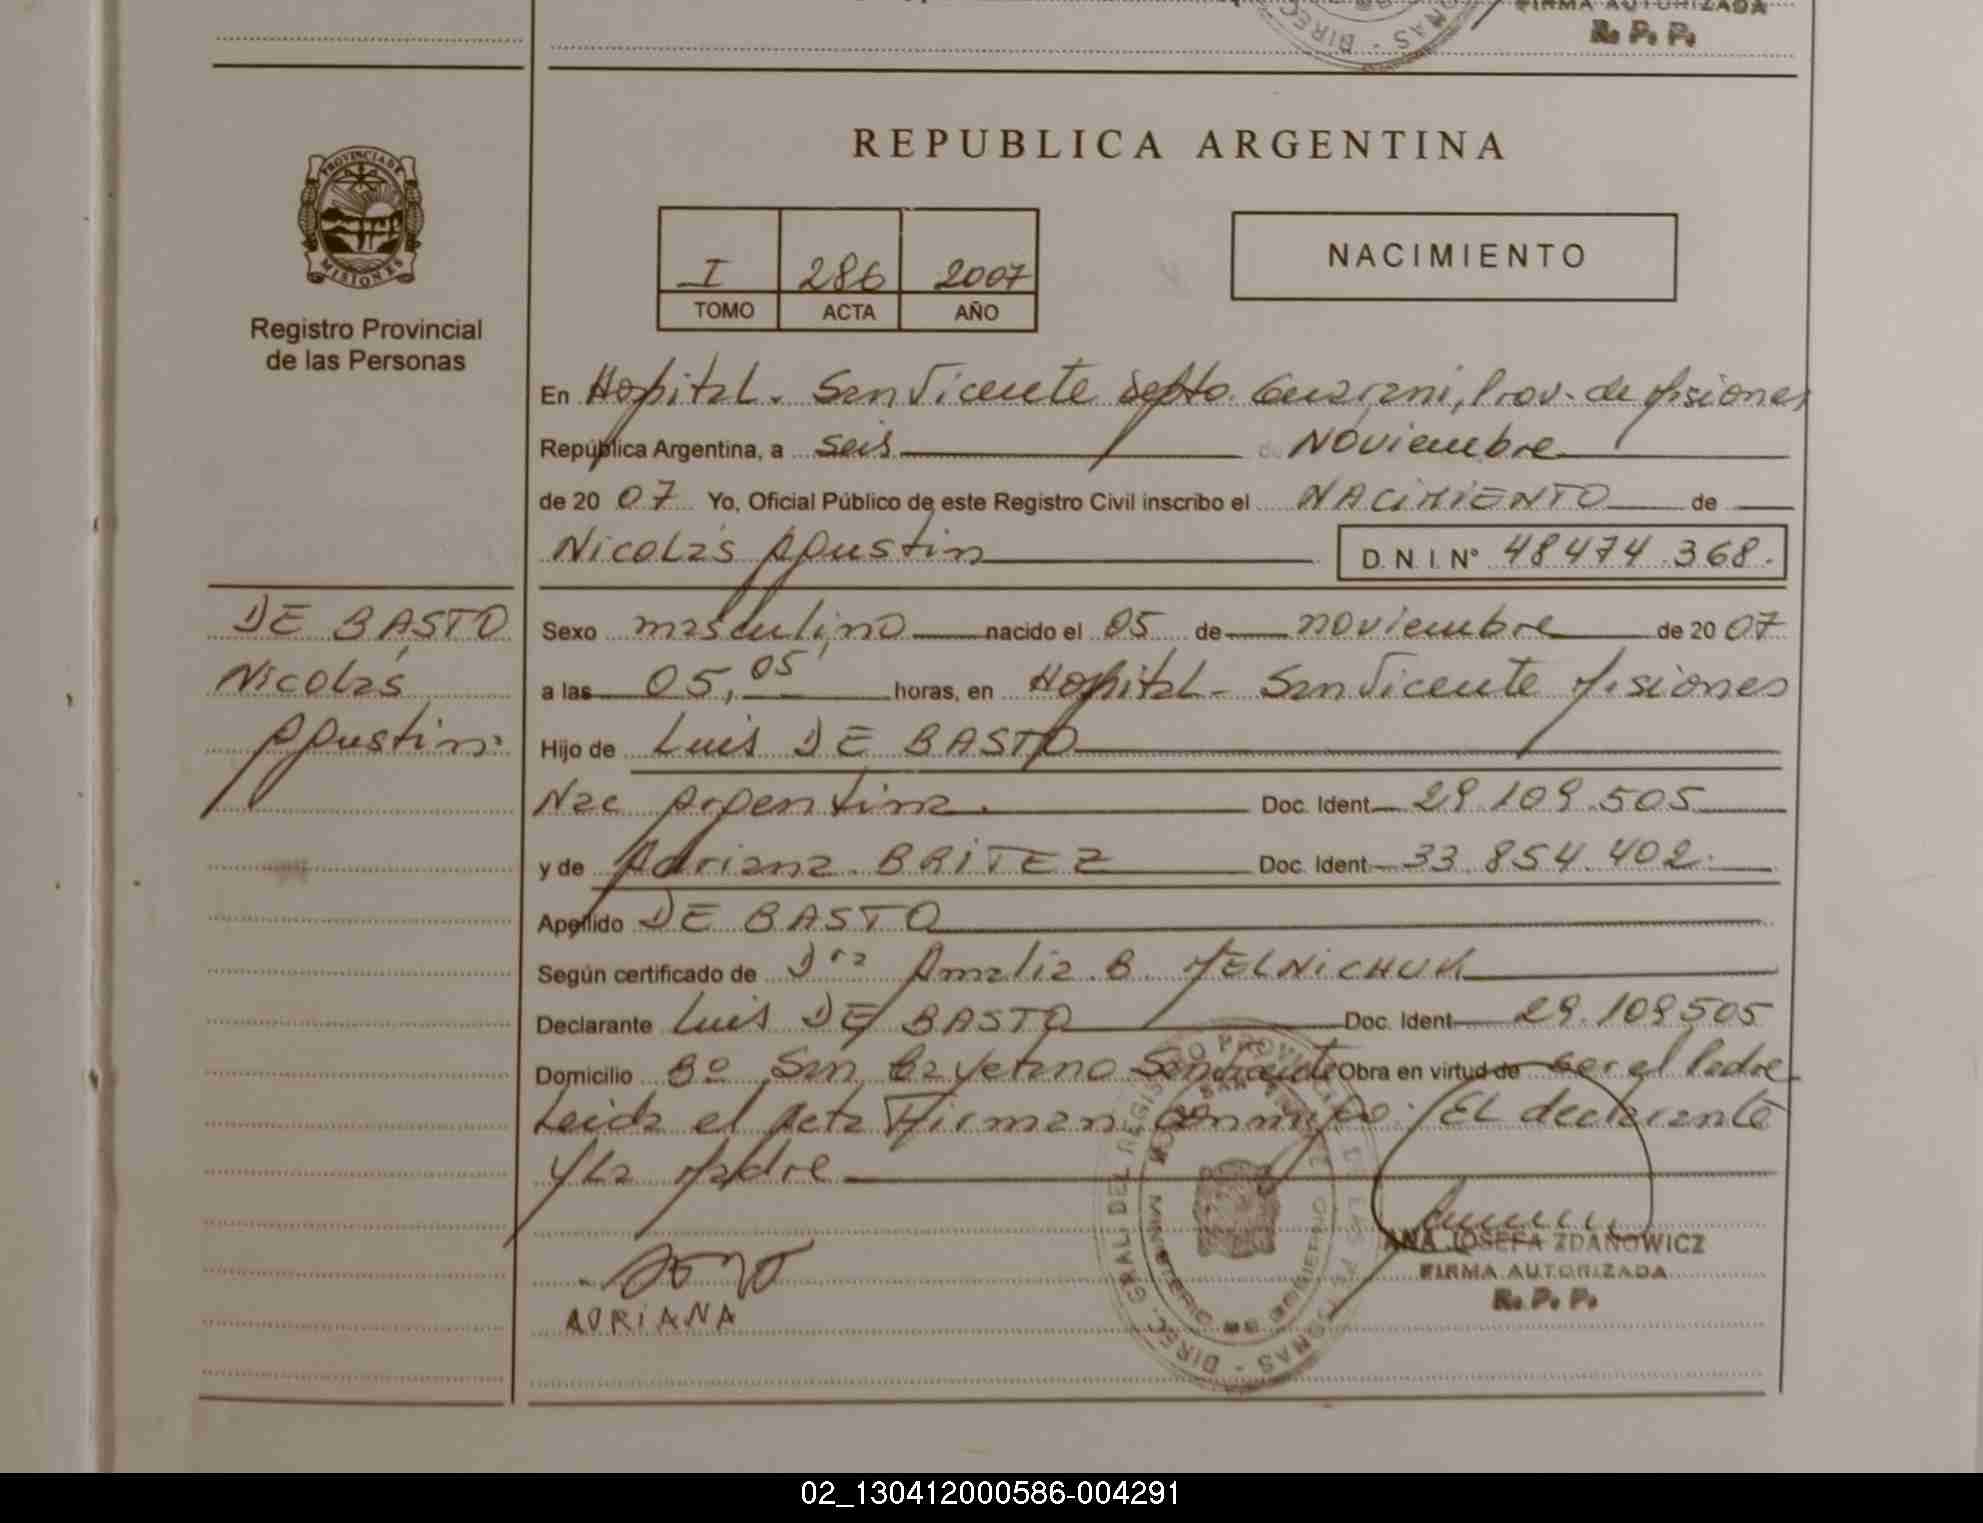 FIRMA AUTORIZADA
R. P. P.
PROVINCIA DE
MISIONES
Registro Provincial
de las Personas
REPUBLICA ARGENTINA
I 286 2007
TOMO ACTA AÑO
NACIMIENTO
En Hospital. San Vicente Depto. Guarani, Prov. de Misiones
República Argentina, a seis de Noviembre
de 20 07 Yo, Oficial Público de este Registro Civil inscribo el NACIMIENTO de
Nicolás Agustin D. N. I. N° 48474.368.
DE BASTO
Nicolás
Agustin.
Sexo masculino nacido el 05 de noviembre de 20 07
a las 05,05 horas, en Hospital - San Vicente Misiones
Hijo de Luis DE BASTO
Nac Argentina. Doc. Ident 29.109.505
y de Adriana. BRITEZ Doc. Ident 33.854.402.
Apellido DE BASTO
Según certificado de Dra Amalia. B. MELNICHUK
Declarante Luis DE BASTO Doc. Ident 29.109505
Domicilio Bº San Cayetano San Vicente Obra en virtud de ser el Padre
Leida el Acta Firman conmigo: EL declarante
y La Madre
ADRIANA
ANA JOSEFA ZDANOWICZ
FIRMA AUTORIZADA
R. P. P.
DIREC. GRAL. DEL REGISTRO PROVINCIAL DE LAS PERSONAS
MINISTERIO DE GOBIERNO
02_130412000586-004291